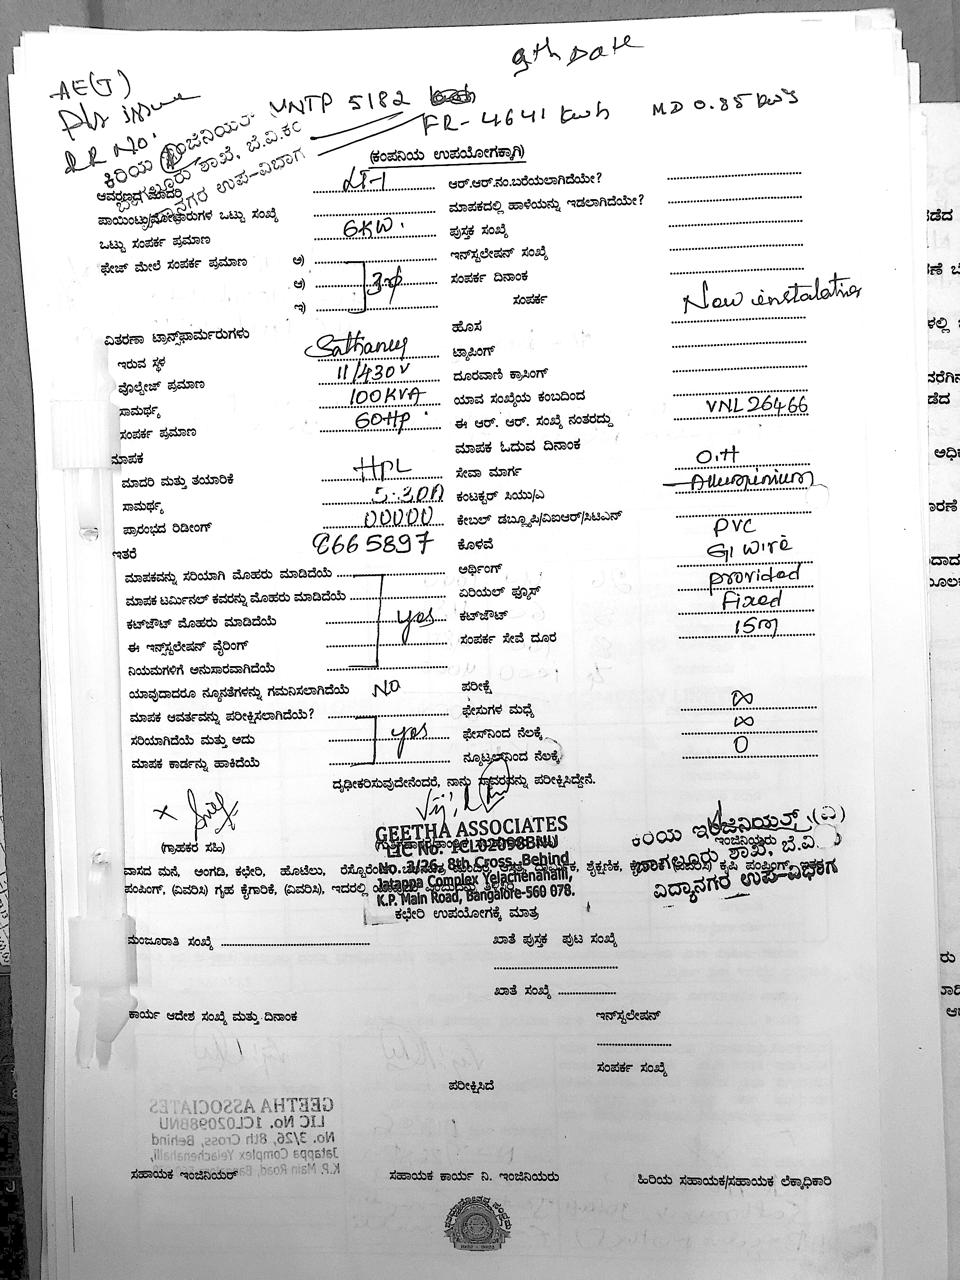 9th Date
AE(T)
Pls issue
RR No:
VNTP 5182
FR-4641 kwh MD 0.85 kw's
ಕಿರಿಯ ಇಂಜಿನಿಯರ್
ಬಾಗಲ್ಲೂರು ಶಾಖೆ, ಬೆ.ವಿ.ಕಂ
ವಿದ್ಯಾನಗರ ಉಪ-ವಿಭಾಗ
(ಕಂಪನಿಯ ಉಪಯೋಗಕ್ಕಾಗಿ)
ಆವರಣದ ಮಾದರಿ LT-1 ಆರ್.ಆರ್.ನಂ.ಬರೆಯಲಾಗಿದೆಯೇ?
ಒಟ್ಟು ಸಂಖ್ಯೆ ಮಾಪಕದಲ್ಲಿ ಹಾಳೆಯನ್ನು ಇಡಲಾಗಿದೆಯೇ?
ಒಟ್ಟು ಸಂಪರ್ಕ ಪ್ರಮಾಣ 6KW. ಪುಸ್ತಕ ಸಂಖ್ಯೆ
ಫೇಜ್ ಮೇಲೆ ಸಂಪರ್ಕ ಪ್ರಮಾಣ ಅ) ಇನ್‌ಸ್ಟಲೇಷನ್ ಸಂಖ್ಯೆ
ಆ) 3rd ಸಂಪರ್ಕ ದಿನಾಂಕ
ಇ) ಸಂಪರ್ಕ New instalation
ವಿತರಣಾ ಟ್ರಾನ್ಸ್‌ಫಾರ್ಮರುಗಳು ಹೊಸ
ಇರುವ ಸ್ಥಳ Sathanur ಟ್ಯಾಪಿಂಗ್
ವೊಲ್ಟೇಜ್ ಪ್ರಮಾಣ 11/430V ದೂರವಾಣಿ ಕ್ರಾಸಿಂಗ್
ಸಾಮರ್ಥ್ಯ 100KVA ಯಾವ ಸಂಖ್ಯೆಯ ಕಂಬದಿಂದ
ಸಂಪರ್ಕ ಪ್ರಮಾಣ 60HP. ಈ ಆರ್. ಆರ್. ಸಂಖ್ಯೆ ನಂತರದ್ದು VNL26466
ಮಾಪಕ ಮಾಪಕ ಓದುವ ದಿನಾಂಕ
ಮಾದರಿ ಮತ್ತು ತಯಾರಿಕೆ HPL ಸೇವಾ ಮಾರ್ಗ O.H
ಸಾಮರ್ಥ್ಯ 5-30A ಕಂಟಕ್ಟರ್ ಸಿಯು/ಎ Alluminium
ಪ್ರಾರಂಭದ ರಿಡೀಂಗ್ 00000 ಕೇಬಲ್ ಡಬ್ಲ್ಯೂಪಿ/ವಿಐಆರ್/ಸಿಟಿಎಸ್
ಇತರೆ 8665897 ಕೊಳವೆ PVC
ಮಾಪಕವನ್ನು ಸರಿಯಾಗಿ ಮೊಹರು ಮಾಡಿದೆಯೆ ಅರ್ಥಿಂಗ್ GI wire
ಮಾಪಕ ಟರ್ಮಿನಲ್ ಕವರನ್ನು ಮೊಹರು ಮಾಡಿದೆಯೆ ಏರಿಯಲ್ ಫ್ಯೂಸ್ provided
ಕಟ್‌ಔಟ್ ಮೊಹರು ಮಾಡಿದೆಯೆ yes ಕಟ್‌ಔಟ್ Fixed
ಈ ಇನ್‌ಸ್ಟಲೇಷನ್ ವೈರಿಂಗ್ ಸಂಪರ್ಕ ಸೇವೆ ದೂರ 15m
ನಿಯಮಗಳಿಗೆ ಅನುಸಾರವಾಗಿದೆಯೆ
ಯಾವುದಾದರೂ ನ್ಯೂನತೆಗಳನ್ನು ಗಮನಿಸಲಾಗಿದೆಯೆ No ಪರೀಕ್ಷೆ
ಮಾಪಕ ಆವರ್ತವನ್ನು ಪರೀಕ್ಷಿಸಲಾಗಿದೆಯೆ? ಫೇಸುಗಳ ಮಧ್ಯೆ ∞
ಸರಿಯಾಗಿದೆಯೆ ಮತ್ತು ಅದು yes ಫೇಸ್‌ನಿಂದ ನೆಲಕ್ಕೆ ∞
ಮಾಪಕ ಕಾರ್ಡನ್ನು ಹಾಕಿದೆಯೆ ನ್ಯೂಟ್ರಲ್‌ನಿಂದ ನೆಲಕ್ಕೆ 0
ದೃಢೀಕರಿಸುವುದೇನೆಂದರೆ, ನಾನು ಸ್ಥಾವರವನ್ನು ಪರೀಕ್ಷಿಸಿದ್ದೇನೆ.
(ಗ್ರಾಹಕರ ಸಹಿ)
GEETHA ASSOCIATES
LIC No. 1CL02098BNU
No. 3/26, 8th Cross, Behind
Jatappa Complex Yelachenahalli,
K.P. Main Road, Bangalore-560 078.
ಕಿರಿಯ ಇಂಜಿನಿಯರ್ (ವಿ)
ಇಂಜಿನಿಯರು
ಬಾಗಲ್ಲೂರು ಶಾಖೆ, ಬೆ.ವಿ.
ವಿದ್ಯಾನಗರ ಉಪ-ವಿಭಾಗ
ವಾಸದ ಮನೆ, ಅಂಗಡಿ, ಕಛೇರಿ, ಹೊಟೇಲು, ಶೈಕ್ಷಣಿಕ, (ವಿವರಿಸಿ) ಕೃಷಿ ಪಂಪಿಂಗ್,
ಪಂಪಿಂಗ್, (ವಿವರಿಸಿ) ಗೃಹ ಕೈಗಾರಿಕೆ, (ವಿವರಿಸಿ), ಇದರಲ್ಲಿ
ಕಛೇರಿ ಉಪಯೋಗಕ್ಕೆ ಮಾತ್ರ
ಮಂಜೂರಾತಿ ಸಂಖ್ಯೆ ಖಾತೆ ಪುಸ್ತಕ ಪುಟ ಸಂಖ್ಯೆ
ಖಾತೆ ಸಂಖ್ಯೆ
ಕಾರ್ಯ ಆದೇಶ ಸಂಖ್ಯೆ ಮತ್ತು ದಿನಾಂಕ ಇನ್‌ಸ್ಟಲೇಷನ್
ಸಂಪರ್ಕ ಸಂಖ್ಯೆ
ಪರೀಕ್ಷಿಸಿದೆ
ಸಹಾಯಕ ಇಂಜಿನಿಯರ್ ಸಹಾಯಕ ಕಾರ್ಯ ನಿ. ಇಂಜಿನಿಯರು ಹಿರಿಯ ಸಹಾಯಕ/ಸಹಾಯಕ ಲೆಕ್ಕಾಧಿಕಾರಿ